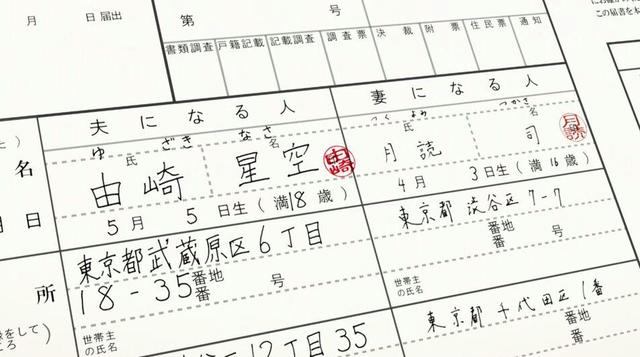 月 日 届出
第 号
書類調査 戸籍記載 記載調査 調査票 決裁 附票 住民票 通知
この届書を本
夫になる人
妻になる人
ゆ ざき なさ
つく よみ つかさ
氏 名
氏 名
名
由崎 星空 由崎
月読 司 月読
月日
5月 5日生(満18歳)
4月 3日生(満16歳)
東京都武蔵原区6丁目
18-35 番地 番 号
東京都 渋谷区 7-7
番地 番 号
所
世帯主の氏名
世帯主の氏名
をして
ころ
12丁目35
東京都 千代田区 1番
番地
番